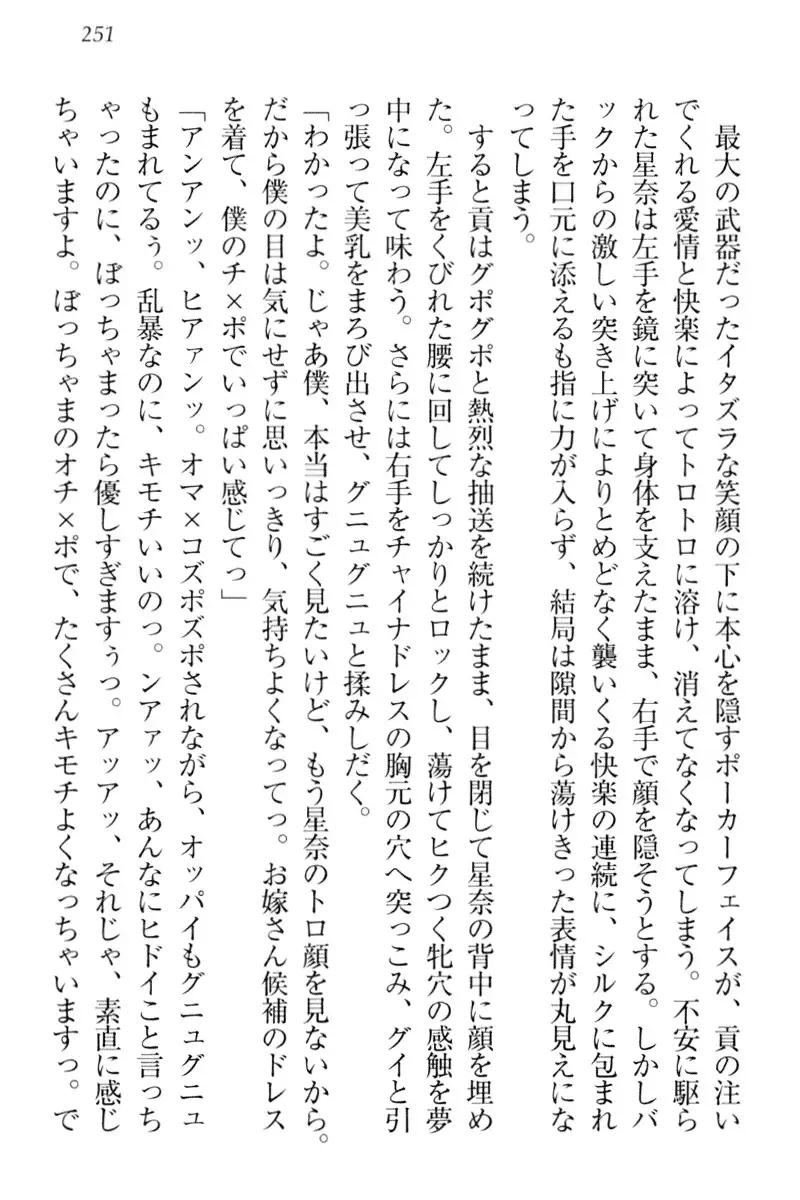 251
最大の武器だったイタズラな笑顔の下に本心を隠すポーカーフェイスが、貢の注い
でくれる愛情と快楽によってトロトロに溶け、消えてなくなってしまう。不安に駆ら
れた星奈は左手を鏡に突いて身体を支えたまま、右手で顔を隠そうとする。しかしバ
ックからの激しい突き上げによりとめどなく襲いくる快楽の連続に、シルクに包まれ
た手を口元に添えるも指に力が入らず、結局は隙間から蕩けきった表情が丸見えにな
ってしまう。
すると貢はグポグポと熱烈な抽送を続けたまま、目を閉じて星奈の背中に顔を埋め
た。左手をくびれた腰に回してしっかりとロックし、蕩けてヒクつく牝穴の感触を夢
中になって味わう。さらには右手をチャイナドレスの胸元の穴へ突っこみ、グイと引
っ張って美乳をまろび出させ、グニュグニュと揉みしだく。
「わかったよ。じゃあ僕、本当はすごく見たいけど、もう星奈のトロ顔を見ないから。
だから僕の目は気にせずに思いっきり、気持ちよくなってっ。お嫁さん候補のドレス
を着て、僕のチ×ポでいっぱい感じてっ」
「アンアンッ、ヒアァンッ。オマ×コズポズポされながら、オッパイもグニュグニュ
もまれてるぅ。乱暴なのに、キモチいいのっ。ンアァッ、あんなにヒドイこと言っち
ゃったのに、ぼっちゃまったら優しすぎますぅっ。アッアッ、それじゃ、素直に感じ
ちゃいますよ。ぼっちゃまのオチ×ポで、たくさんキモチよくなっちゃいますっ。で